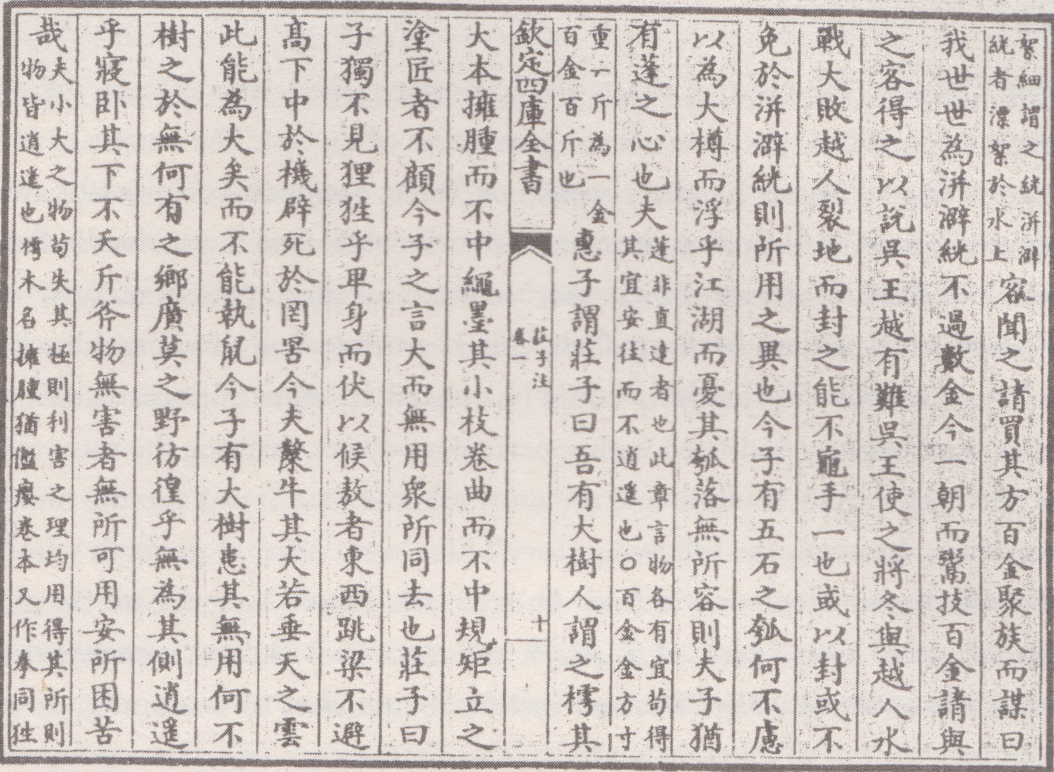 絮細謂之絖洴澼
絖者漂絮於水上
客聞之請買其方百金聚族而謀曰
我世世為洴澼絖不過數金今一朝而鬻技百金請與
之客得之以說吳王越有難吳王使之將冬與越人水
戰大敗越人裂地而封之能不龜手一也或以封或不
免於洴澼絖則所用之異也今子有五石之瓠何不慮
以為大樽而浮乎江湖而憂其瓠落無所容則夫子猶
有蓬之心也夫
蓬非直達者也此章言物各有宜苟得
其宜安往而不逍遥也○百金金方寸
重一斤為一金
百金百斤也
惠子謂莊子曰吾有大樹人謂之樗其
欽定四庫全書
莊子注
卷一
十
大本擁腫而不中繩墨其小枝卷曲而不中規矩立之
塗匠者不顧今子之言大而無用衆所同去也莊子曰
子獨不見狸狌乎卑身而伏以候敖者東西跳梁不避
髙下中於機辟死於罔罟今夫斄牛其大若垂天之雲
此能為大矣而不能執鼠今子有大樹患其無用何不
樹之於無何有之鄉廣莫之野彷徨乎無為其側逍遥
乎寢卧其下不夭斤斧物無害者無所可用安所困苦
哉
夫小大之物苟失其極則利害之理均用得其所則
物皆逍遥也樗木名擁腫猶傴癭卷本又作拳同狌